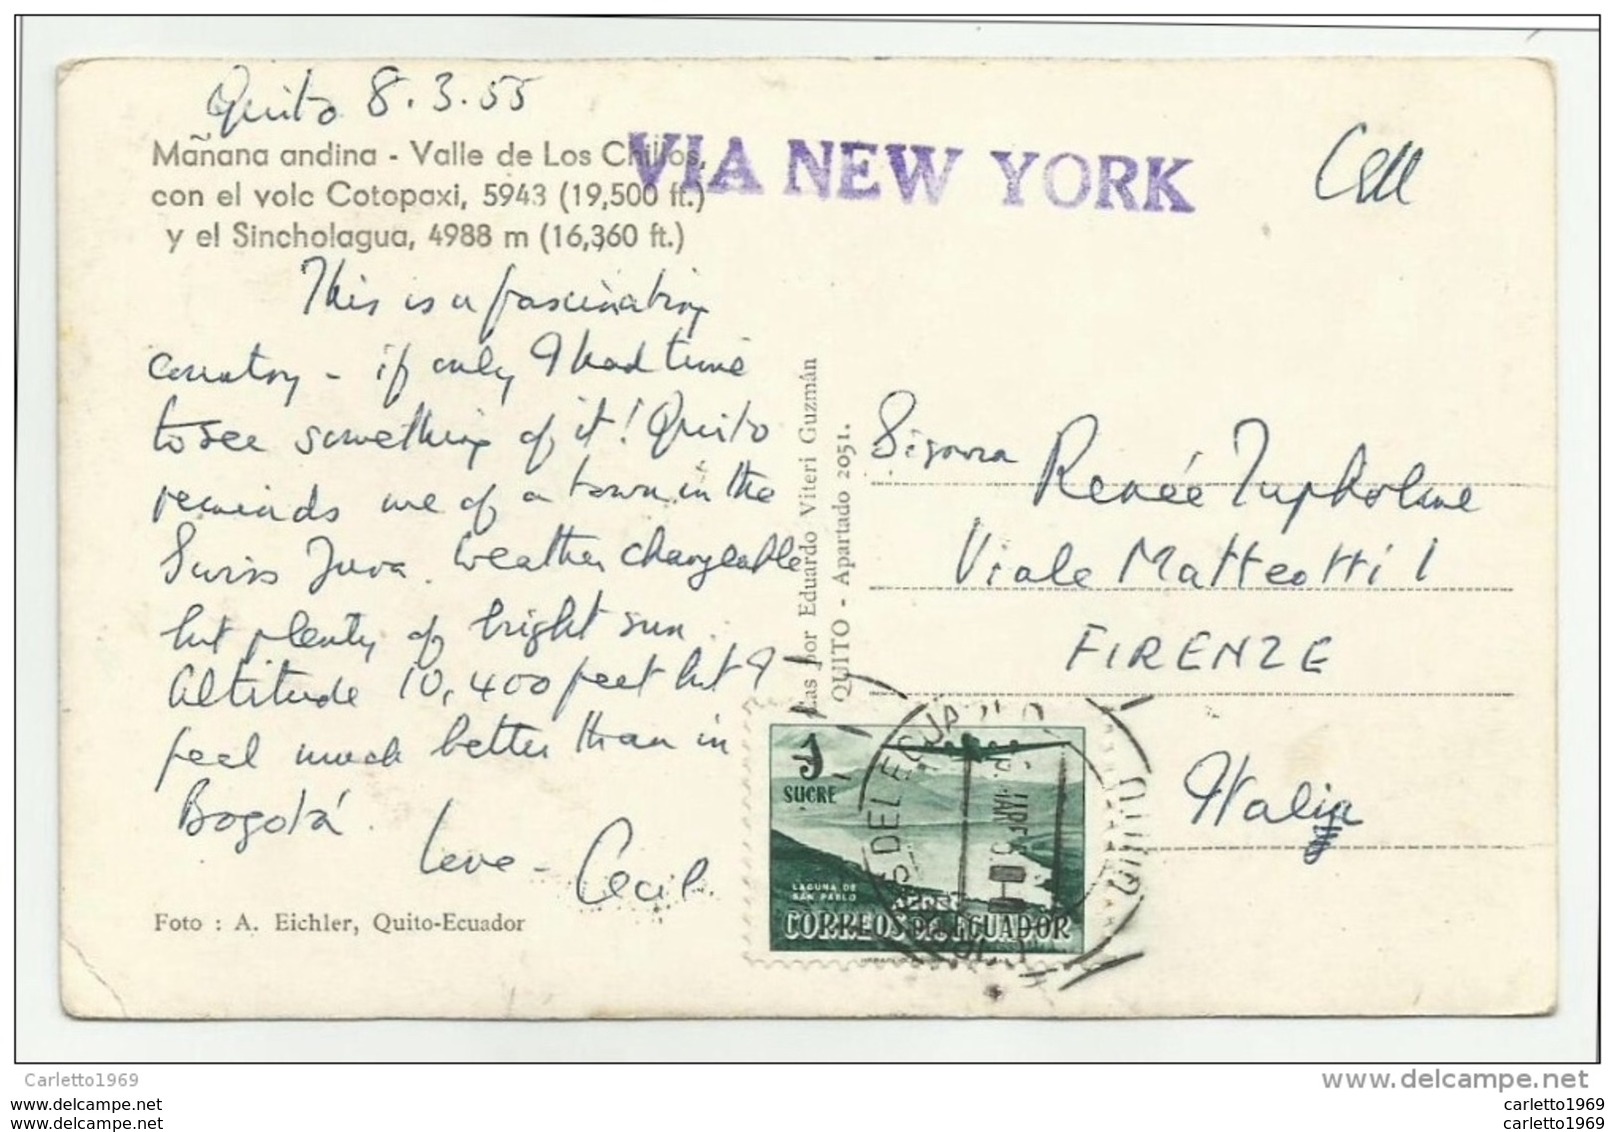 Quito 8.3.55
Mañana andina - Valle de Los Chillos,
con el volc Cotopaxi, 5943 (19,500 ft.)
y el Sincholagua, 4988 m (16,360 ft.)
This is a fascinating
country - if only I had time
to see something of it! Quito
reminds me of a town in the
Swiss Jura. Weather changeable
but plenty of bright sun.
Altitude 10,400 feet but I
feel much better than in
Bogotá.
Love - Cecil.
Foto : A. Eichler, Quito-Ecuador
VIA NEW YORK
por Eduardo Viteri Guzmán
QUITO - Apartado 2051.
Signora Renée
Viale Matteotti 1
FIRENZE
Italia
1
SUCRE
LAGUNA DE
SAN PABLO
AEREO
CORREOS DEL ECUADOR
QUITO
Carletto1969
www.delcampe.net
www.delcampe.net
www.delcampe.net
carletto1969
carletto1969